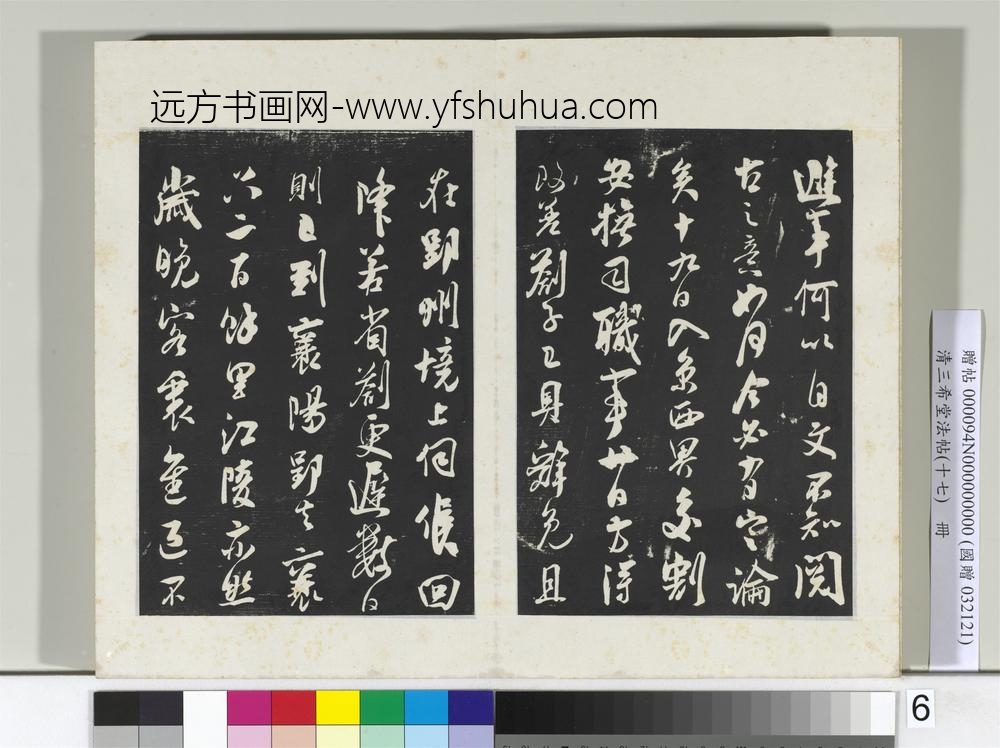 远方书画网-www.yfshuhua.com
年何以自文不知閫
古之意如何今必有定論
矣十九日入京西界交割
安撫司職事廿日方得
改差劄子已具辭免且
在郢州境上伺候回
降若省劄更遲數日
則已到襄陽郢去襄
六二百餘里江陵亦然
歲晚客裏進退不
贈帖 000094N000000000 (國贈 032121)
清三希堂法帖(十七) 冊
6